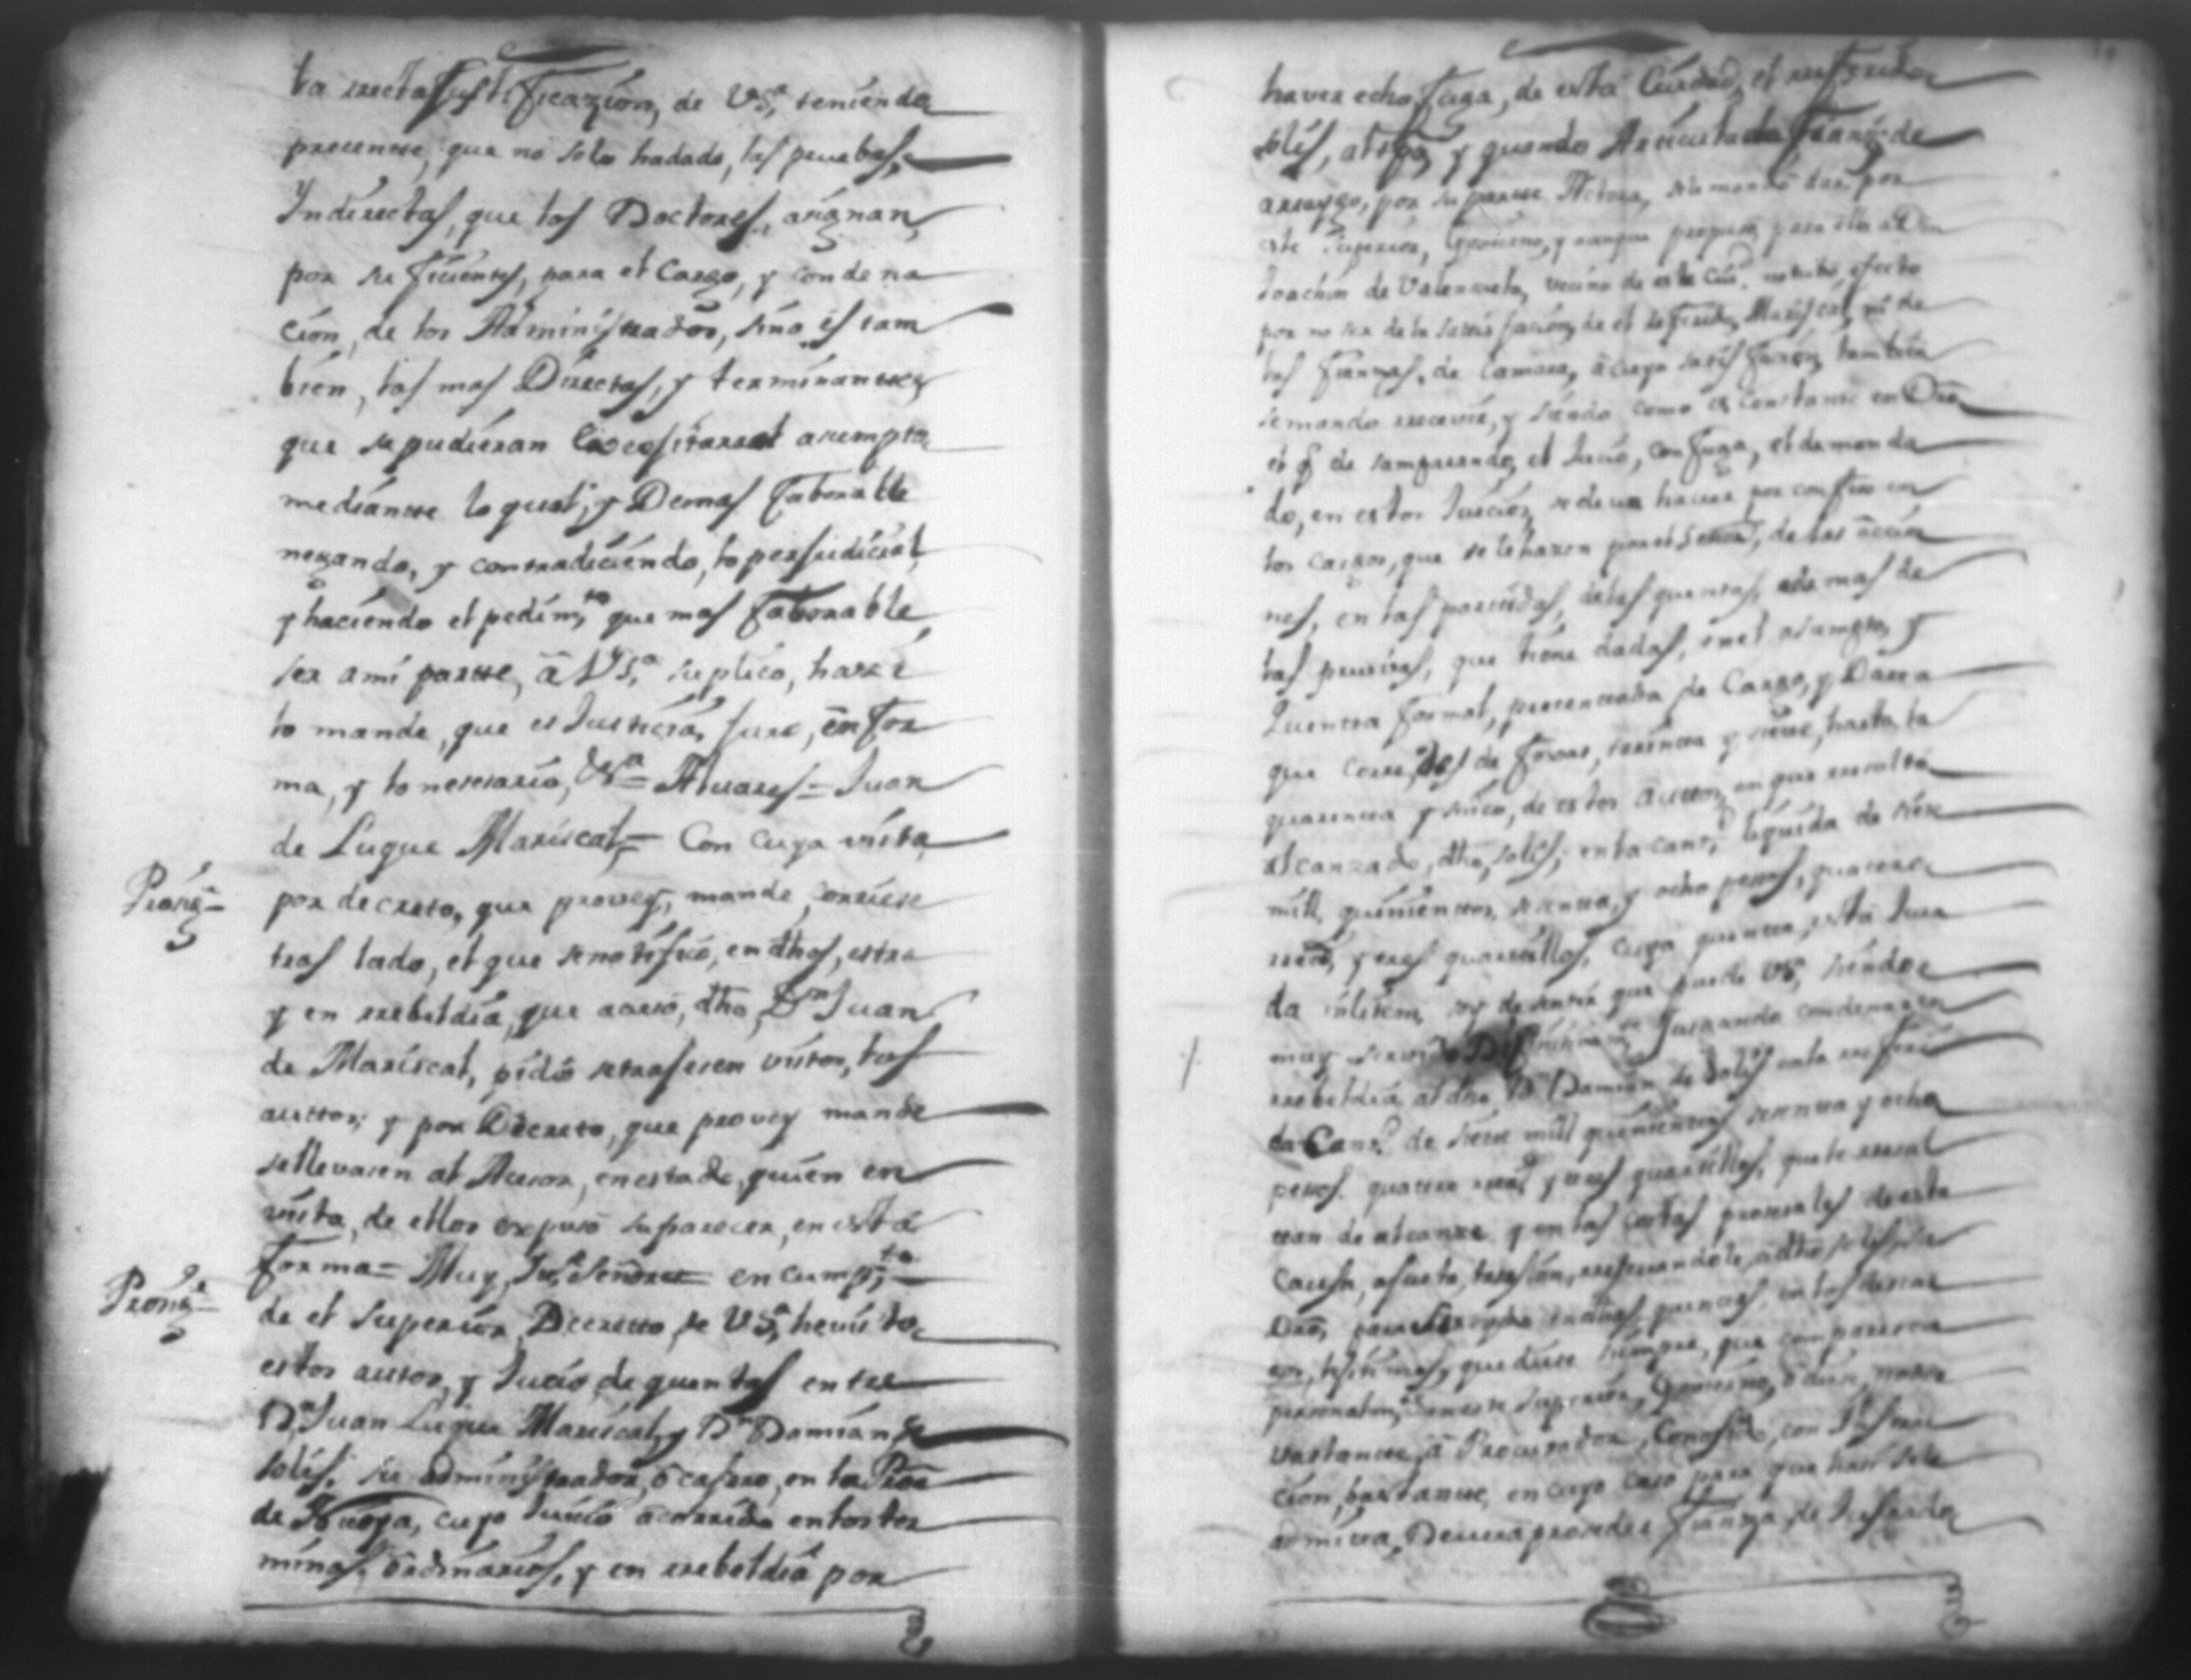 la recta Justificazion, de VSª, teniendo
precente, que no solo hadado, las pruebas,
Yndirectas, que los Doctores, asignan,
por suficientes, para el Cargo, y condena
cion, de los Administradors, sino es tam
bien, las mas Directas, y terminantes
que se pudieran al asumpto
mediante lo qual, y Demas faborable
negando, y contradiciendo, lo perjudicial,
y haciendo el pedimto que mas faborable,
sea a mi partte, â VSª suplico, haze i
lo mande, que es Justicia, Juro, en for
ma, y lo nesesario, &ª = Alvares = Juan
de Luque Mariscal = Con cuya vista
por decreto, que provey, mande, corriese
tras lado, el que se notifico, en dhos, estra
y en rrebeldia, que acuso, dho, Dn Juan
de Mariscal, pidio se trasesen vistos, los
auttos, y por Decreto, que provey mande
se llevasen al Acesor, en estado, quien en
vista, de ellos expuso su parecer, en esta
forma = Muy, Ile Señor = en cumpto
de el Superior Decretto de VSª, he visto,
estos autos, y Juicio de quentas entre
Dn Juan Luque Mariscal, y Dn Damian de
Solis, su administrador, ô casero, en la
de cuyo Juicio a corrido en los ter
minos, ordinarios, y en rrebeldia por
haver echo fuga, de esta Ciudad, el rreferido
Solis, y quando Articulada fianza de
arraygo, por su partte Actora, se le mando dar por
este Superior, Govierno, y aunque propuso para ella a Dn
Joachin de Valenzuela, vecino de esta Ciud, no tubo, efecto
por no ser de la Satisfacion, de el referido, Mariscal, ni de
las fianzas, de Camara, â cuya satisfazon, tambien
se mando rrecevir, y siendo como es Constante en Dro
el q desamparando, el Juicio, con fuga, el demanda
do, en estos Juicios, se deve haver por confeso en
los cargos, que se le hazen por el Señor, de las accio
nes, en las partidas, de las quentas, ademas de
las pruevas, que tiene dadas, en el asumpto, y
Quentta formal, precenttada de Cargo, y Datta
que corre, desde foxas, treintta y siete, hasta la
quarentta y sinco, de estos auttos, en que rresulta
alcanzado, dho, Solis, en la cantd liquida de siete
mill, quinienttos, sesentta, y ocho pesos, quattro
rreas, y tres quartillos, cuya quentta, está Jura
da soy de sentir que puede VSª, siendo
muy servido Juzgando condenar en
rrebeldia al dho, Dn Damian de Solis en la rreferi
da Cantd de siete mill quinienttos, sesentta y ocho
pesos, quattro rreas y tres quartillos, que le rresul
tan de alcanze y en las costas prosesales de esta
Causa, a justa, tasasion, rreservandole, a dho Solis, su
Dro, quentas, en los descar
gos, lexitimos, que diese siempre, que comparesca
personalmte en este Superior, Govierno, ô diese, poder
vastantte, â Procurador, Conosido, con Ynstruc
cion, bastante, en cuyo caso para que haci se le
admitta, Devera proceder fianza, de Jusgado
Prong
Prong
que
que